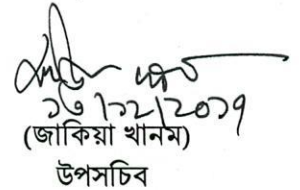 ১৩/১২/২০১৭
(জাকিয়া খানম)
উপসচিব